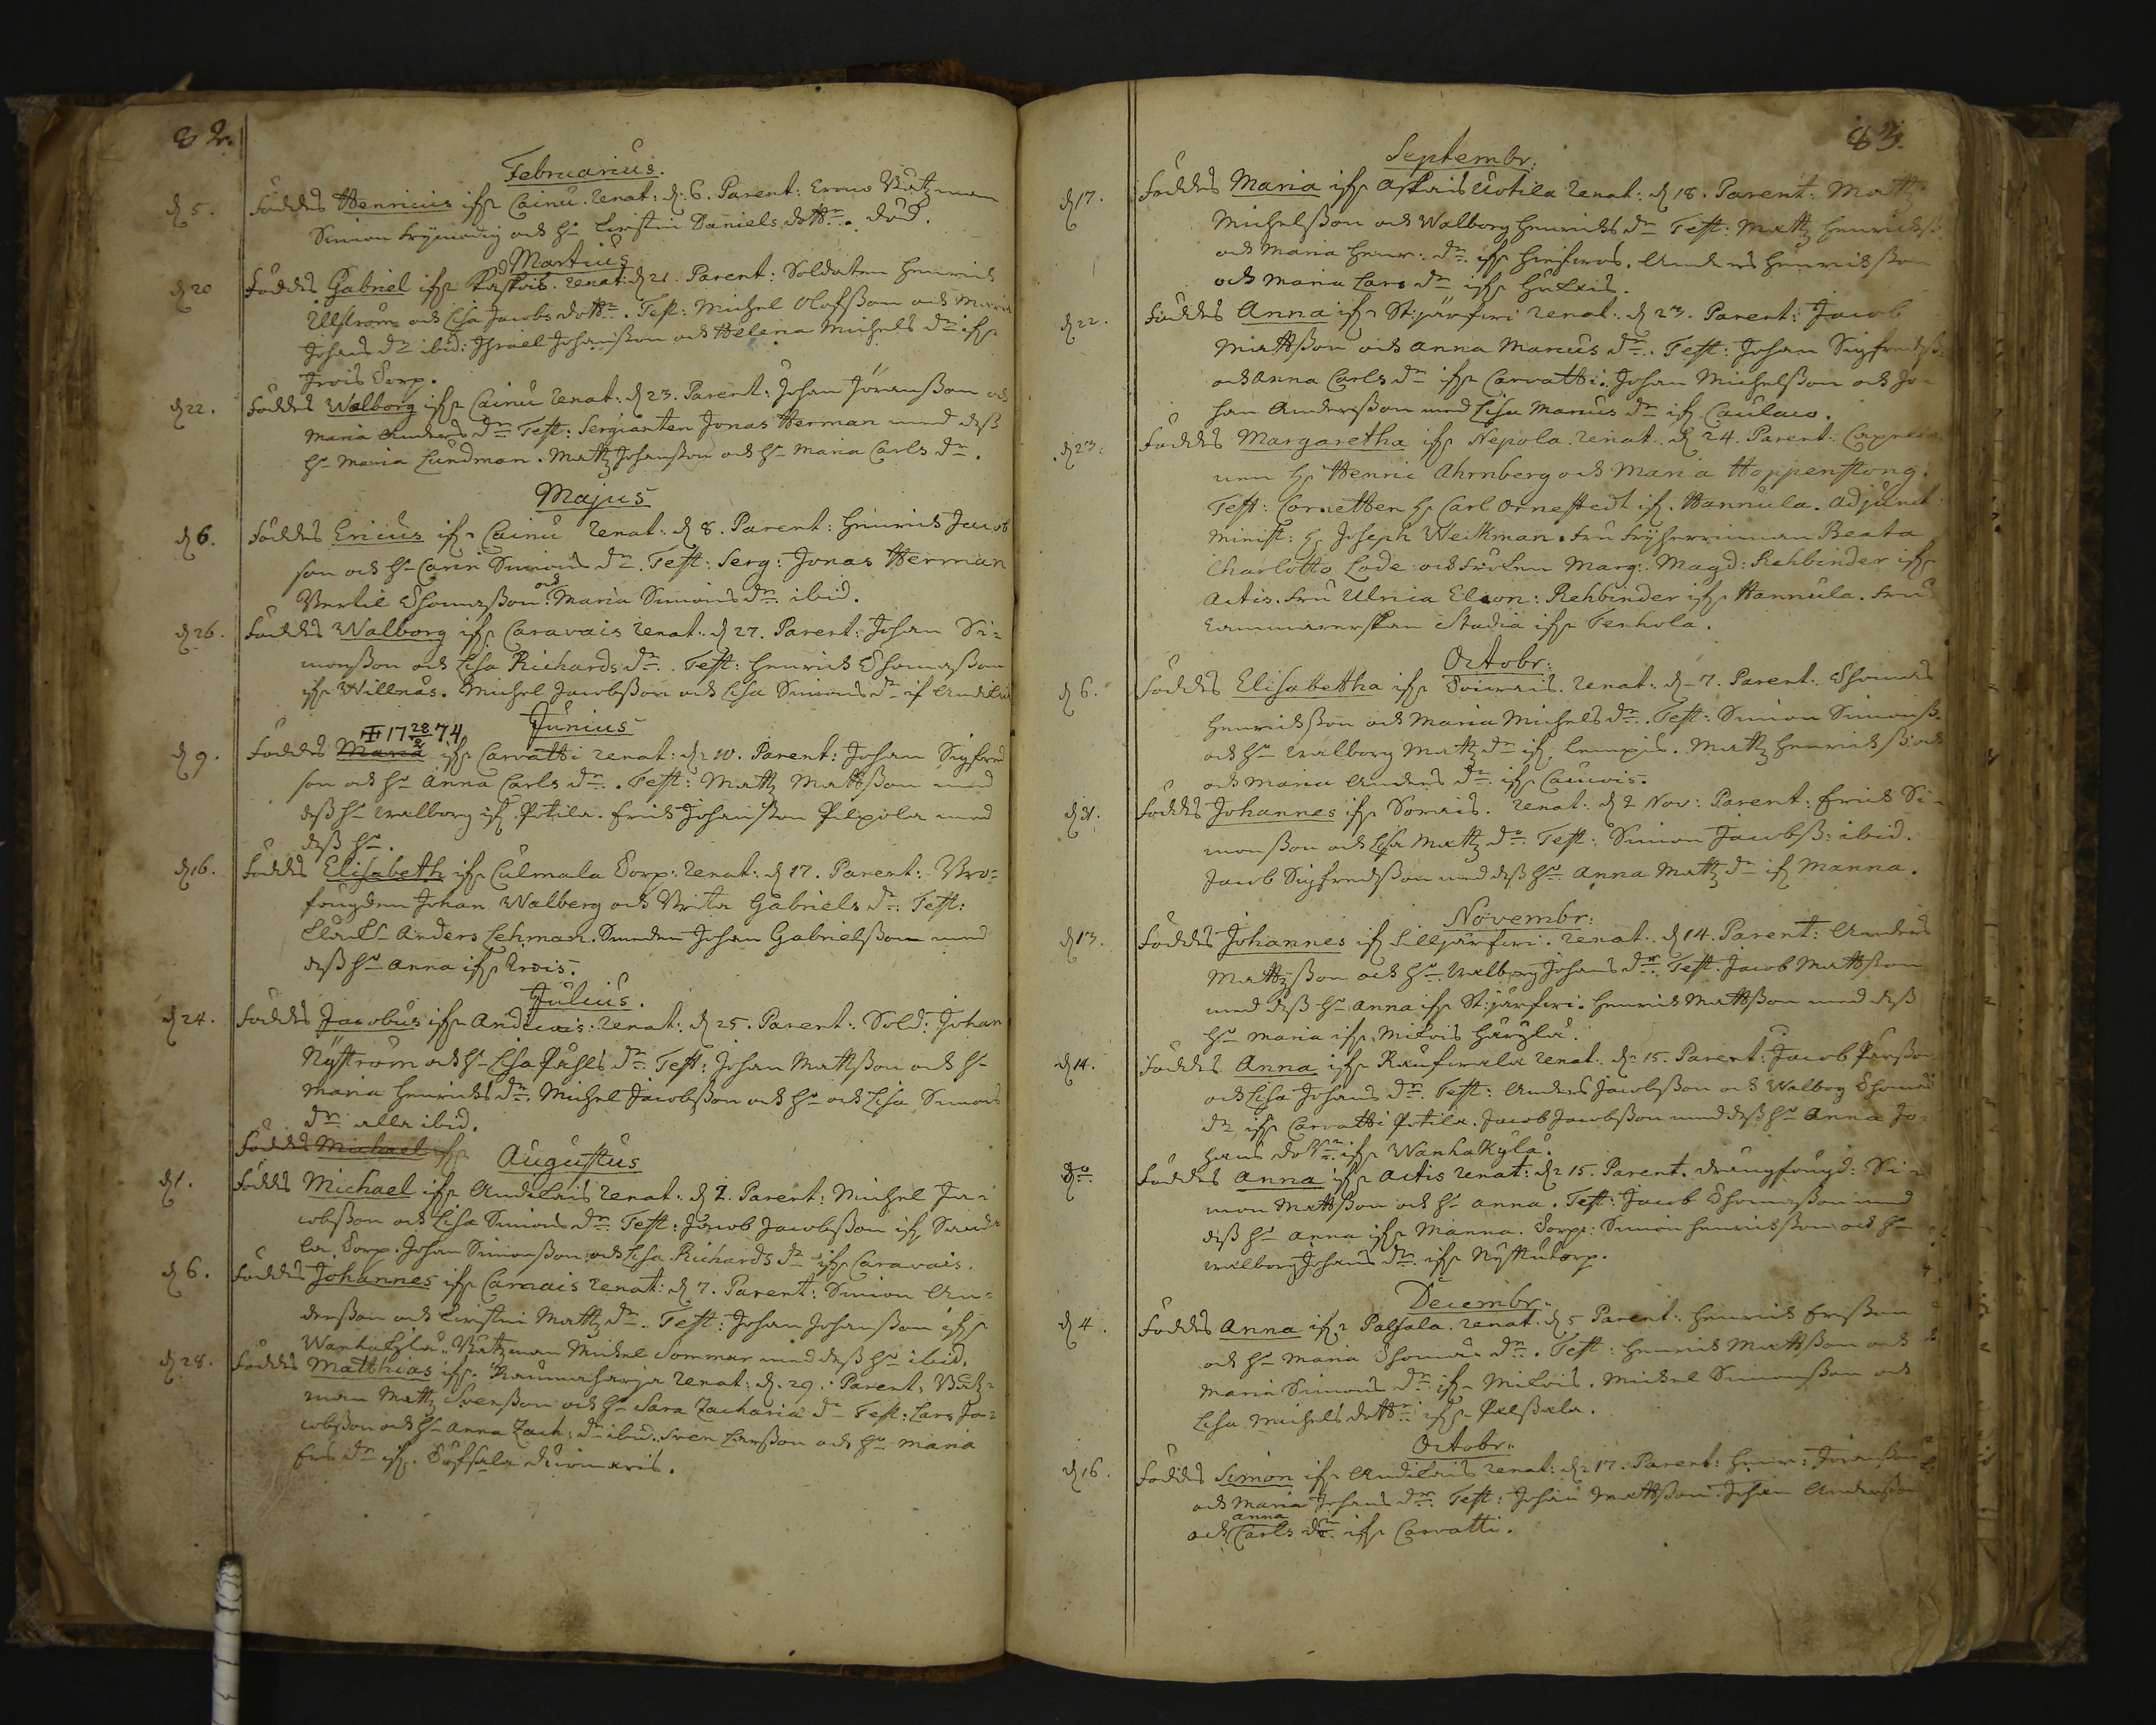 82.
Februarius.
d 5. Föddes Henricus ifr Cainu. Renat: d. 6. Parent: Crono Båtzman
Simon Frijmodig och h: Kirstin Daniels dottr. död.
Martius
d 20 Föddes Gabriel ifr Renat: d 21. Parent: Soldaten Henrich
Ulström och Lisa Jacobs dottr. Test: Michel Olofsson och Maria
Johans dr ibid: Israel Johansson och Helena Michels dr ifr
Trois Torp.
d 22. Föddes Walborg ifr Cainu Renat: d 23. Parent: Johan Jöransson och
Maria Anders dr Test: Sergianten Jonas Herman med dess
h: Maria Lundman. Matz Johansson och h: Maria Carls dr.
Majus
d 6. Föddes Ericus ifr Cainu Renat: d 8. Parent: Henrich Jacob
son och h: Carin Simons dr. Test: Serg: Jonas Herman
Bertil Thomasson och Maria Simons dr ibid.
d 26. Föddes Walborg ifr Caravais Renat: d 27. Parent: Johan Si-
monsson och Lisa Richards dr. Test: Henrich Thomasson
ifr Willnäs. Michel Jacobsson och Lisa Simons dr if
Junius
1728/2 74
d 9. Föddes Maria ifr Carvatti Renat: d 10. Parent: Johan Sigfred
son och h: Anna Carls dr. Test: Matz Mattsson med
dess h: Walborg if Potila. Erich Johansson Pilpola med
dess h:.
d 16. Föddes Elisabeth ifr Culmala Torp: Renat: d 17. Parent: Bro-
fougden Johan Walberg och Brita Gabriels dr. Test:
Anders Lehman. Smeden Johan Gabrielsson med
dess h: Anna ifr Trois.
Julius.
d 24. Föddes Jacobus ifr Andilais: Renat: d 25. Parent: Sold: Johan
Nyström och h: Lisa Påhls dr Test: Johan Mattsson och h:
Maria Henrichs dr. Michel Jacobsson och h: och Lisa Simons
dr alla ibid.
Föddes Michael ifr
Augustus
d 1. Föddes Michael ifr Andilais Renat: d 2. Parent: Michel Ja-
cobsson och Lisa Simons dr. Test: Jacob Jacobsson if
Torp. Johan Simonsson och Lisa Richards dr ifr Caravais.
d 6. Föddes Johannes ifr Carvais Renat: d 7. Parent: Simon An-
dersson och Kirstin Matz dr. Test: Johan Johansson ifr
Wanhakylä. Båtzman Michel Sommar med dess h: ibid.
d 28. Föddes Matthias ifr Raumaharja Renat: d. 29. Parent: Båtz-
man Matz Svensson och h: Sara Zachariæ dr Test: Lars Ja-
cobsson och h: Anna Zach: dr ibid. Sven Larsson och h: Maria
Ers dr if.
83.
Septembr:
d 17. Föddes Maria ifr Askais Uotila Renat: d 18. Parent: Matz
Michelsson och Walborg Henrichs dr Test: Matz Henrichss
och Maria Henr: dr ifr Anders Henrichsson
och Maria Lars dr ifr
d 22. Föddes Anna ifr St:järfwi Renat: d 23. Parent: Jacob
Mattsson och Anna Marcus dr. Test: Johan Sigfredss
och Anna Carls dr ifr Carvatti. Johan Michelsson och Jo-
han Andersson med Lisa Marcus dr if
d 23. Föddes Margaretha ifr Nepola. Renat: d 24. Parent: Capella
nen h: Henric Ahrnberg och Maria Hoppenstong.
Test: Cornetten h: Carl Ornestedt if. Hannula. Adjunct
minist: h: Joseph Weckman. Fru Fryherrinnan Beata
Charlotta Lode och Fröken Marg: Magd: Rehbinder ifr
Actis. Fru Ulrica Eleon: Rehbinder ifr Hannula. Fru
Stadia ifr Tenhola.
Octobr:
d 6. Föddes Elisabetha ifr Toivais. Renat: d 7. Parent: Thomas
Henrichsson och Maria Michels dr. Test: Simon Simonss.
och h: Walborg Matz dr if. Lempis. Matz Henrichss och
och Maria Anders dr. ifr
d 31. Föddes Johannes ifr Somais. Renat: d 2 Nov: Parent: Erich Si-
monsson och Lisa Matz dr. Test: Simon Jacobss: ibid.
Jacob Sigfredsson med dess h: Anna Matz dr if Manna.
Novembr:
d 13. Föddes Johannes if Lilljärfwi. Renat: d 14. Parent: Anders
Mattzsson och h: Walborg Johans dr. Test. Jacob Mattsson
med dess h: Anna ifr St:järfwi. Henrich Mattsson med dess
h: Maria ifr Milois
d 14. Föddes Anna ifr Renat: d 15. Parent: Jacob
och Lisa Johans dr. Test: Anders Jacobsson och Walborg Thomas
dr ifr Carvatti Potila. Jacob Jacobsson med dess h: Anna Jo-
hans dottr ifr Wanhakylä.
Föddes Anna ifr Actis Renat: d 15. Parent. Drängfougd: Si-
mon Mattsson och h: Anna. Test: Jacob Thomasson med
dess h: Anna ifr Manna. Torp: Simon Henrichsson och h:
Walborg Johans dr ifr
Decembr:
d 4. Föddes Anna ifr Palsala. Renat: d 5 Parent: Henrich Ersson
och h: Maria Thomæ dr. Test: Henrich Mattsson och
Maria Simons dr ifr Milois. Michel Simonsson och
Lisa Michels dottr ifr Palsala.
Octobr:
d 16. Föddes Simon ifr Andilais Renat: d 17. Parent: Henr: Jöransson
och Maria Johans dr. Test: Johan Mattsson. Johan Andersson
och Anna Carls dr ifr Carvatti.